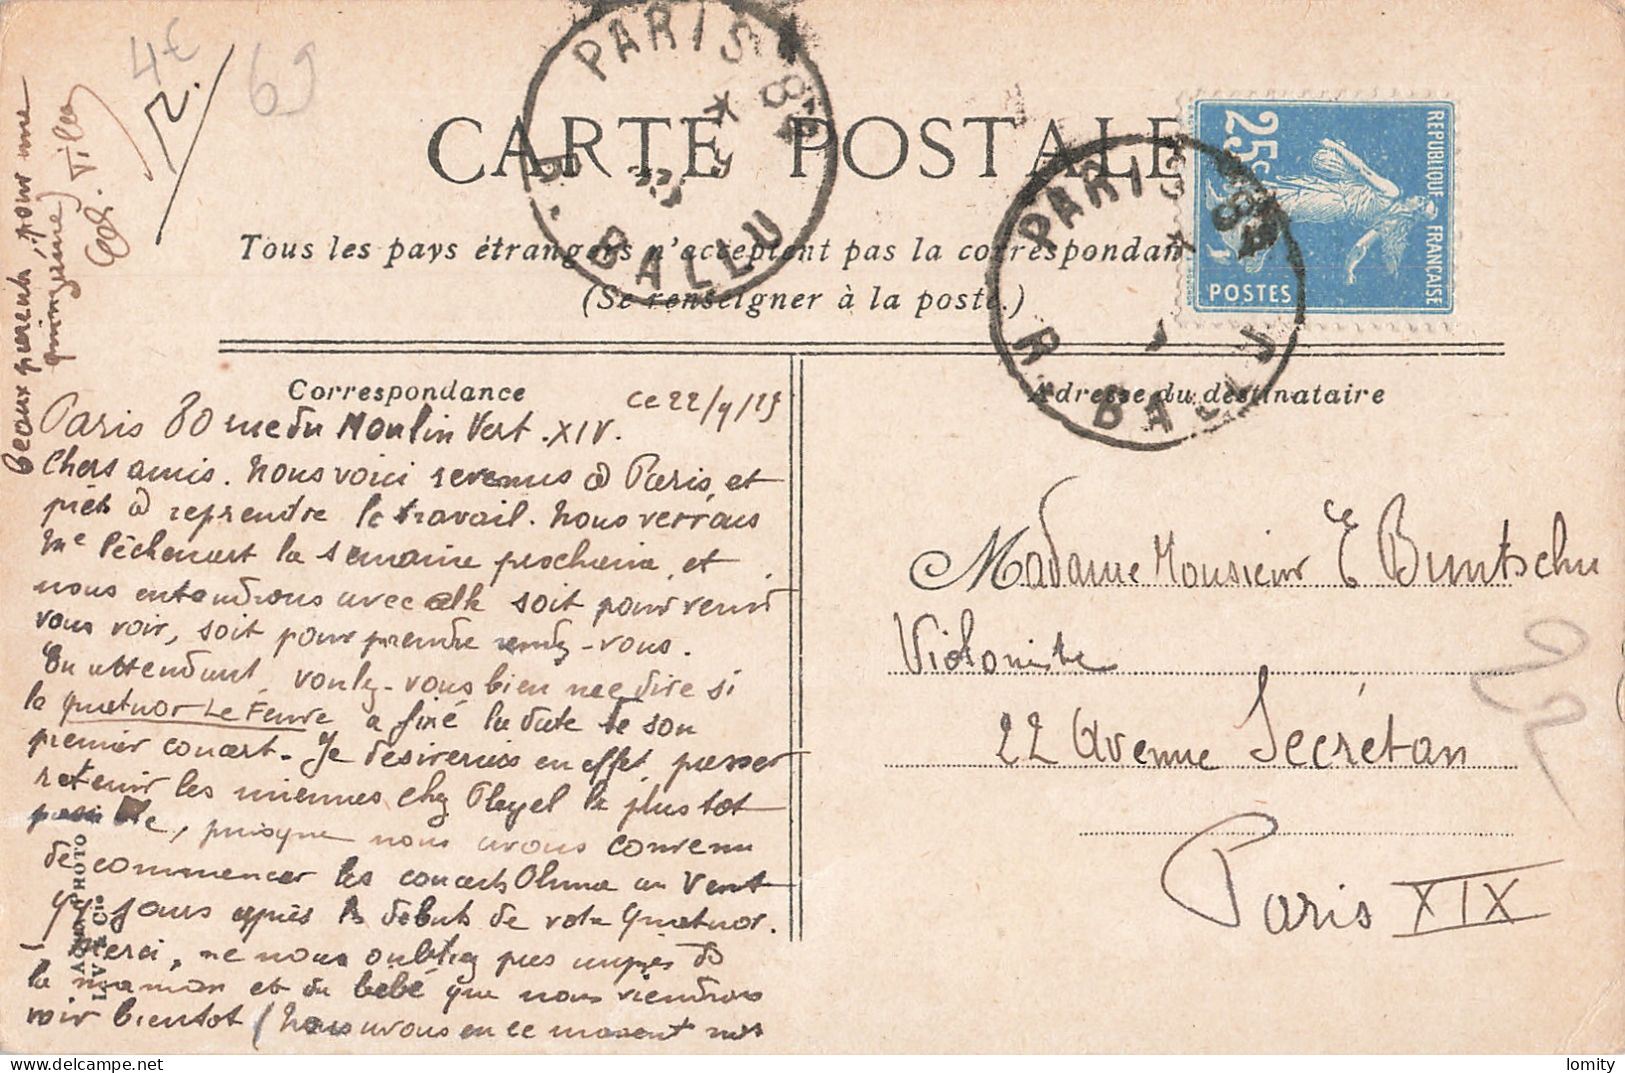 4€
69
CARTE POSTALE
Tous les pays étrangers n'acceptent pas la correspondan
(Se renseigner à la poste.)
PARIS 84
R. BALLU
PARIS 84
R. BALLU
REPUBLIQUE FRANÇAISE
25c
POSTES
Correspondance
Adresse du destinataire
ce 22/9/25
Paris 80 rue du Moulin Vert. XIV.
Chers amis. Nous voici revenus à Paris, et
prêts à reprendre le travail. Nous verrons
Me Péchenart la semaine prochaine, et
nous entendrons avec elle soit pour venir
vous voir, soit pour prendre rendez-vous.
En attendant, voulez-vous bien me dire si
le Quatuor Le Feuve a fixé la date de son
premier concert. Je désirerais en effet passer
retenir les miennes chez Pleyel le plus tôt
possible, puisque nous avons convenu
de commencer les concerts au Vent
jours après le début de votre Quatuor.
Merci, ne nous oubliez pas auprès de
la maman et du bébé que nous viendrons
voir bientôt (Nous avons en ce moment nos
beaux parents, pour une
quinzaine)
Madame Monsieur E Buntschu
Violoniste
22 Avenue Secrétan
Paris XIX
22
PHOTO
L. V. & Cie
lomity